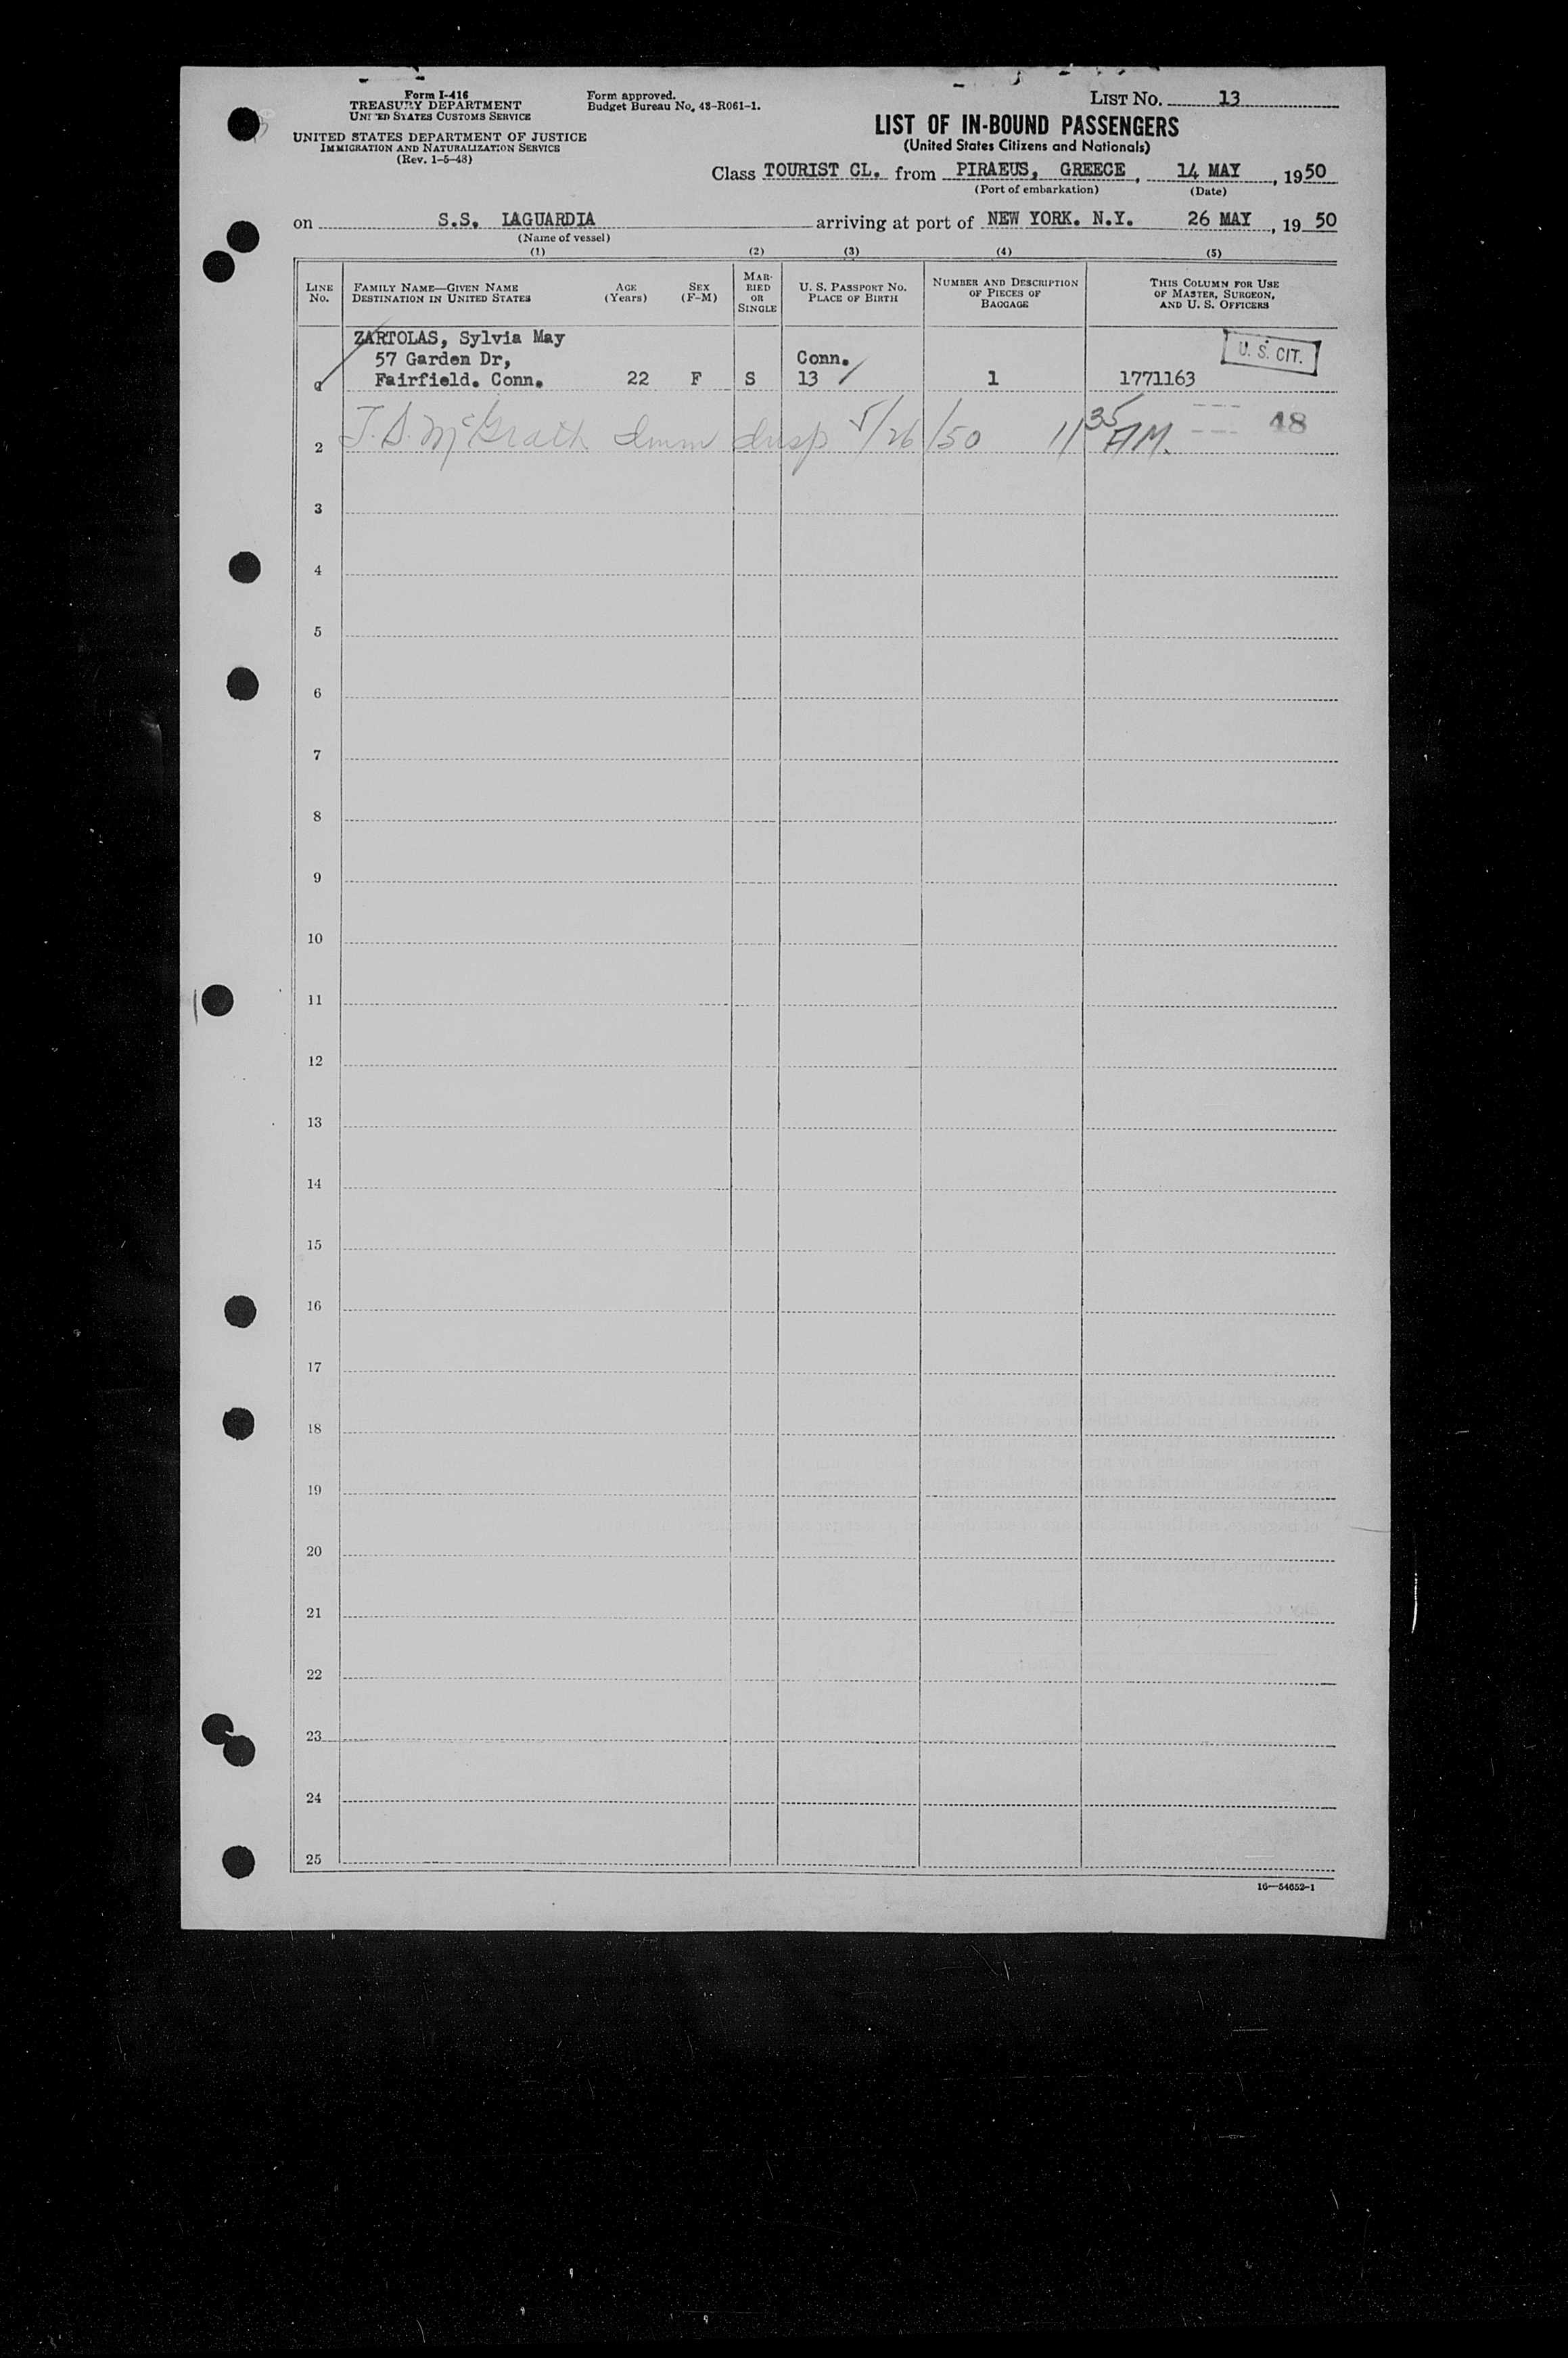 Form I-416
TREASURY DEPARTMENT
UNITED STATES CUSTOMS SERVICE
UNITED STATES DEPARTMENT OF JUSTICE
IMMIGRATION AND NATURALIZATION SERVICE
(Rev. 1-5-48)
Form approved.
Budget Bureau No. 43-R061-1.
LIST NO. 13
LIST OF IN-BOUND PASSENGERS
(United States Citizens and Nationals)
Class TOURIST CL. from PIRAEUS, GREECE, 14 MAY, 1950
(Port of embarkation) (Date)
on S.S. LAGUARDIA arriving at port of NEW YORK. N.Y. 26 MAY, 19 50
(Name of vessel)
(1) (2) (3) (4) (5)
LINE No. FAMILY NAME—GIVEN NAME DESTINATION IN UNITED STATES AGE (Years) SEX (F-M) MARRIED OR SINGLE U. S. PASSPORT NO. PLACE OF BIRTH NUMBER AND DESCRIPTION OF PIECES OF BAGGAGE THIS COLUMN FOR USE OF MASTER, SURGEON, AND U. S. OFFICERS
ZARTOLAS, Sylvia May
57 Garden Dr, Conn. U. S. CIT.
Fairfield. Conn. 22 F S 13 1 1771163
2 J. S. McGrath Imm Insp 5/26/50 11 35 AM. 48
3
4
5
6
7
8
9
10
11
12
13
14
15
16
17
18
19
20
21
22
23
24
25
16—54652-1